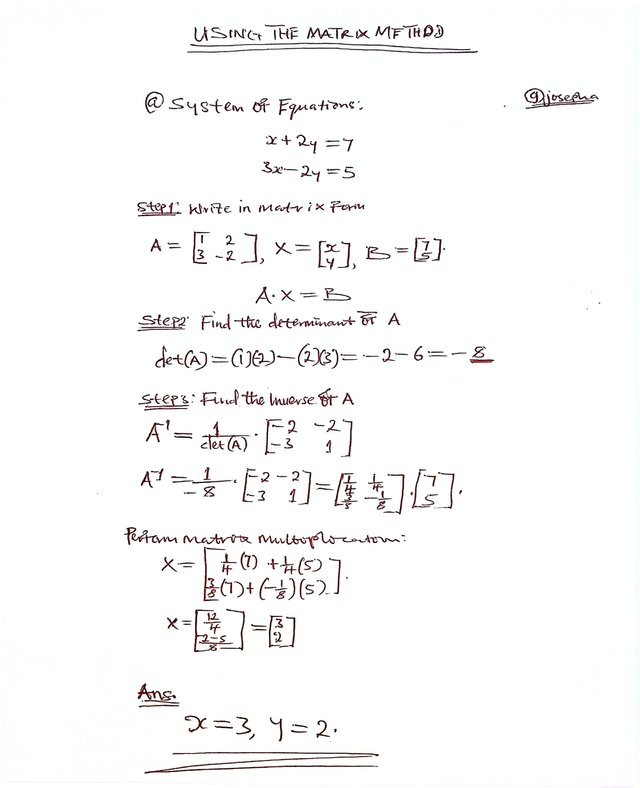 USING THE MATRIX METHOD
@josepha
ⓐ System of Equations:
x + 2y = 7
3x - 2y = 5
Step1: Write in matrix form
A = [1 2; 3 -2], X = [x; y], B = [7; 5].
A·X = B
Step2: Find the determinant of A
det(A) = (1)(2) - (2)(3) = -2 - 6 = -8
Step3: Find the Inverse of A
A⁻¹ = 1/det(A) · [-2 -2; -3 1]
A⁻¹ = 1/-8 · [-2 -2; -3 1] = [1/4 1/4; 3/8 -1/8] · [7; 5].
Perform matrix multiplication:
X = [1/4(7) + 1/4(5); 3/8(7) + (-1/8)(5)].
X = [12/4; 2-5/8] = [3; 2]
Ans.
x = 3, y = 2.